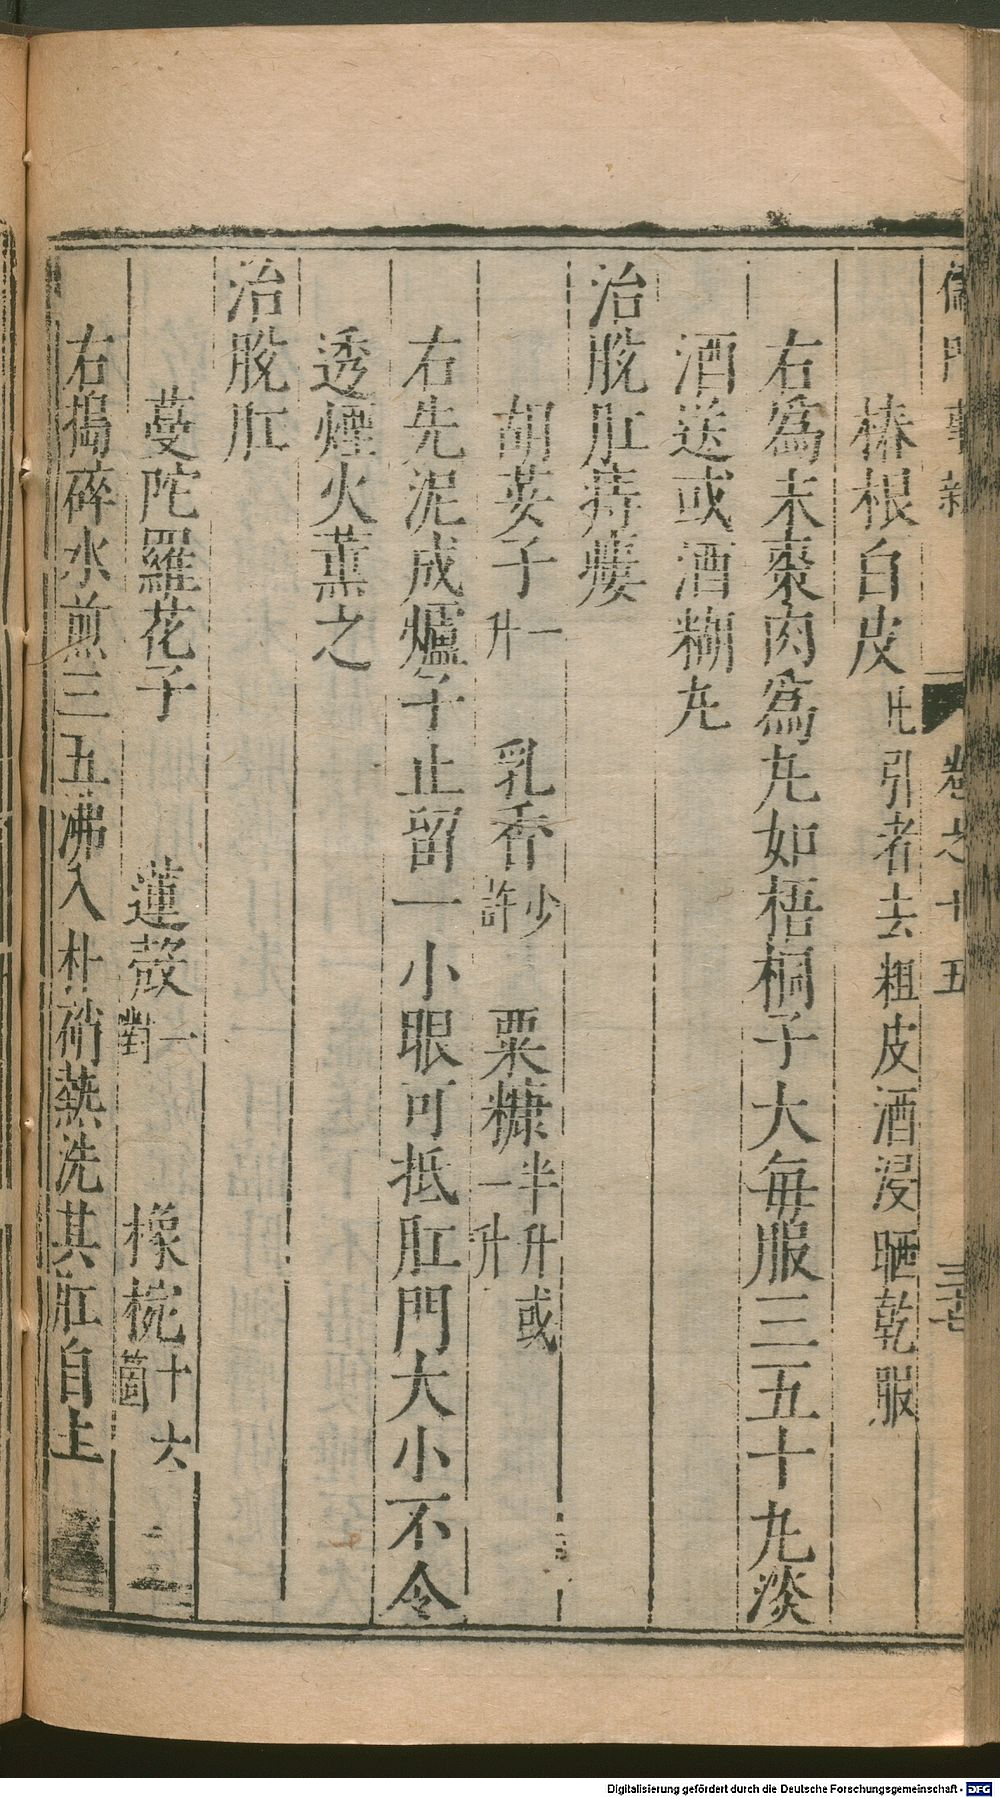 儒門事親 卷之十五 三七
椿根白皮 此引者去粗皮酒浸晒乾服
右爲末棗肉爲丸如梧桐子大每服三五十丸淡
酒送或酒糊丸
治脫肛痔瘻
胡荽子 一升 乳香 少許 粟糠 半升或一升
右先泥成爐子止留一小眼可抵肛門大小不令
透煙火薰之
治脫肛
蔓陀羅花子 蓮殼 一對 橡椀 十六箇
右搗碎水煎三五沸入朴硝熱洗其肛自上
Digitalisierung gefördert durch die Deutsche Forschungsgemeinschaft - DFG